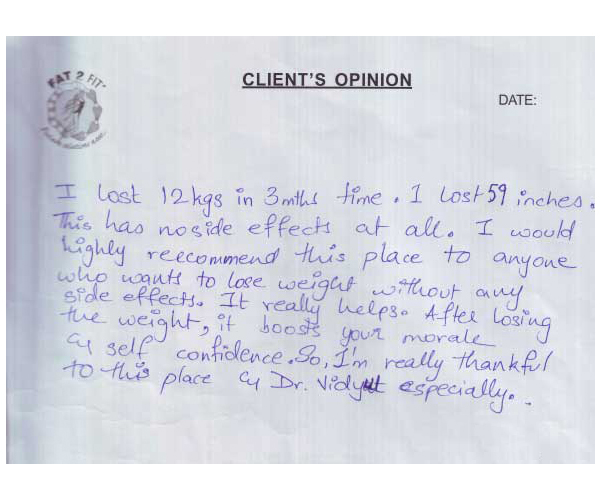 FAT 2 FIT
CLIENT'S OPINION
DATE:
I lost 12kgs in 3mths time. I lost 59 inches.
This has no side effects at all. I would
highly reecommend this place to anyone
who wants to lose weight without any
side effects. It really helps. After losing
the weight, it boosts your morale
& self confidence. So, I'm really thankful
to this place & Dr. Vidyut especially.